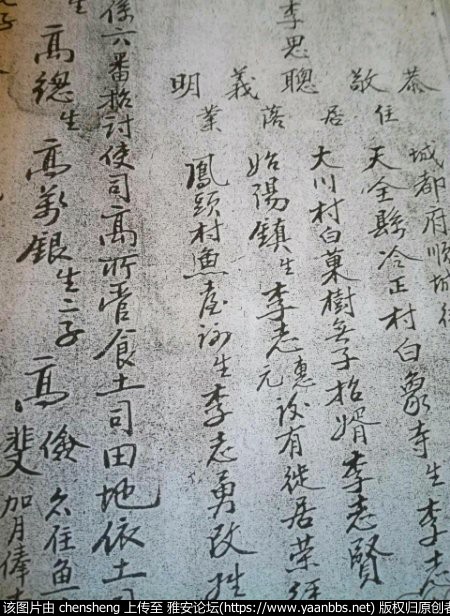 李思聰
恭 城都府順城街
敬 住 天全縣冷正村白象寺生李志
居 大川村白菓樹無子招婿李志賢
義 落 始陽鎮生李志元惠設有徙居榮經
明 業 鳳頭村漁 生李志勇改姓
係六番招討使司高所管食土司田地依土司
生 高總生高萬銀生二子 高儉 久住魚
斐 加月俸
该图片由 chensheng 上传至 雅安论坛(https://www.yaanbbs.net) 版权归原创者